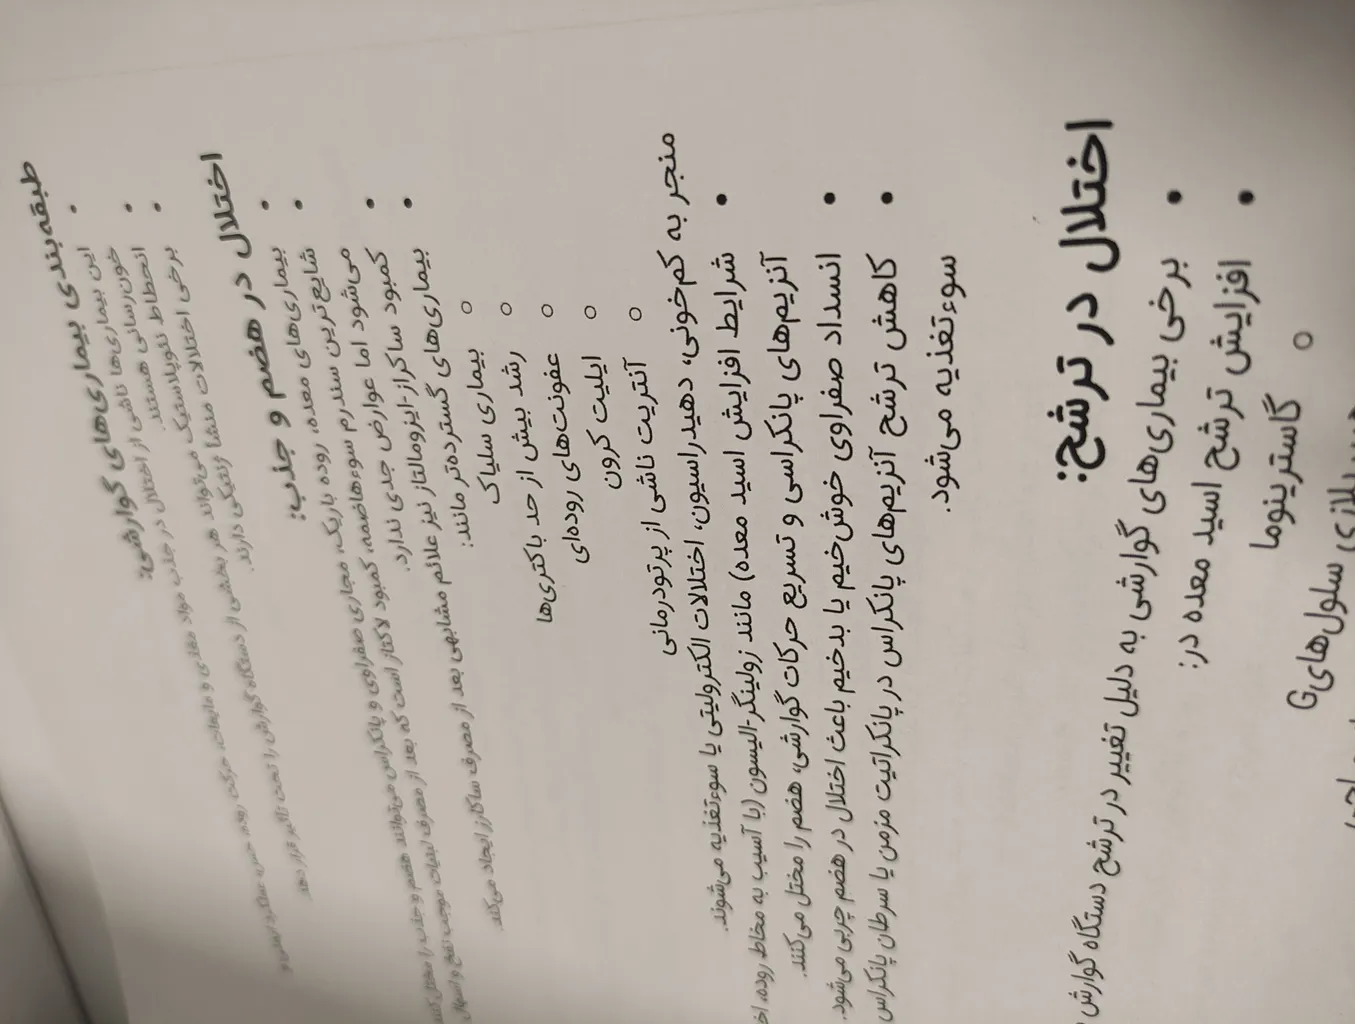 طبقه‌بندی بیماری‌های گوارشی:
• این بیماری‌ها ناشی از اختلال در جذب مواد مغذی و مایعات، حرکت روده،
خون‌رسانی هستند.
• انحطاط نئوپلاستیک می‌تواند هر بخشی از دستگاه گوارش را تحت تاثیر قرار دهد.
• برخی اختلالات منشأ ژنتیکی دارند.
اختلال در هضم و جذب:
• بیماری‌های معده، روده باریک، مجاری صفراوی و پانکراس می‌توانند هضم و جذب را مختل کنند.
• شایع‌ترین سندرم سوءهاضمه، کمبود لاکتاز است که بعد از مصرف لبنیات موجب نفخ و اسهال
می‌شود اما عوارض جدی ندارد.
• کمبود ساکراز-ایزومالتاز نیز علائم مشابهی بعد از مصرف ساکارز ایجاد می‌کند.
• بیماری‌های گسترده‌تر مانند:
○ بیماری سلیاک
○ رشد بیش از حد باکتری‌ها
○ عفونت‌های روده‌ای
○ ایلیت کرون
○ آنتریت ناشی از پرتودرمانی
منجر به کم‌خونی، دهیدراسیون، اختلالات الکترولیتی یا سوءتغذیه می‌شوند.
• شرایط افزایش اسید معده) مانند زولینگر-الیسون (با آسیب به مخاط روده،
آنزیم‌های پانکراسی و تسریع حرکات گوارشی، هضم را مختل می‌کنند.
• انسداد صفراوی خوش‌خیم یا بدخیم باعث اختلال در هضم چربی می‌شود.
• کاهش ترشح آنزیم‌های پانکراس در پانکراتیت مزمن یا سرطان پانکراس
سوءتغذیه می‌شود.
اختلال در ترشح:
• برخی بیماری‌های گوارشی به دلیل تغییر در ترشح دستگاه گوارش
• افزایش ترشح اسید معده در:
○ گاسترینوما
سلول‌های G